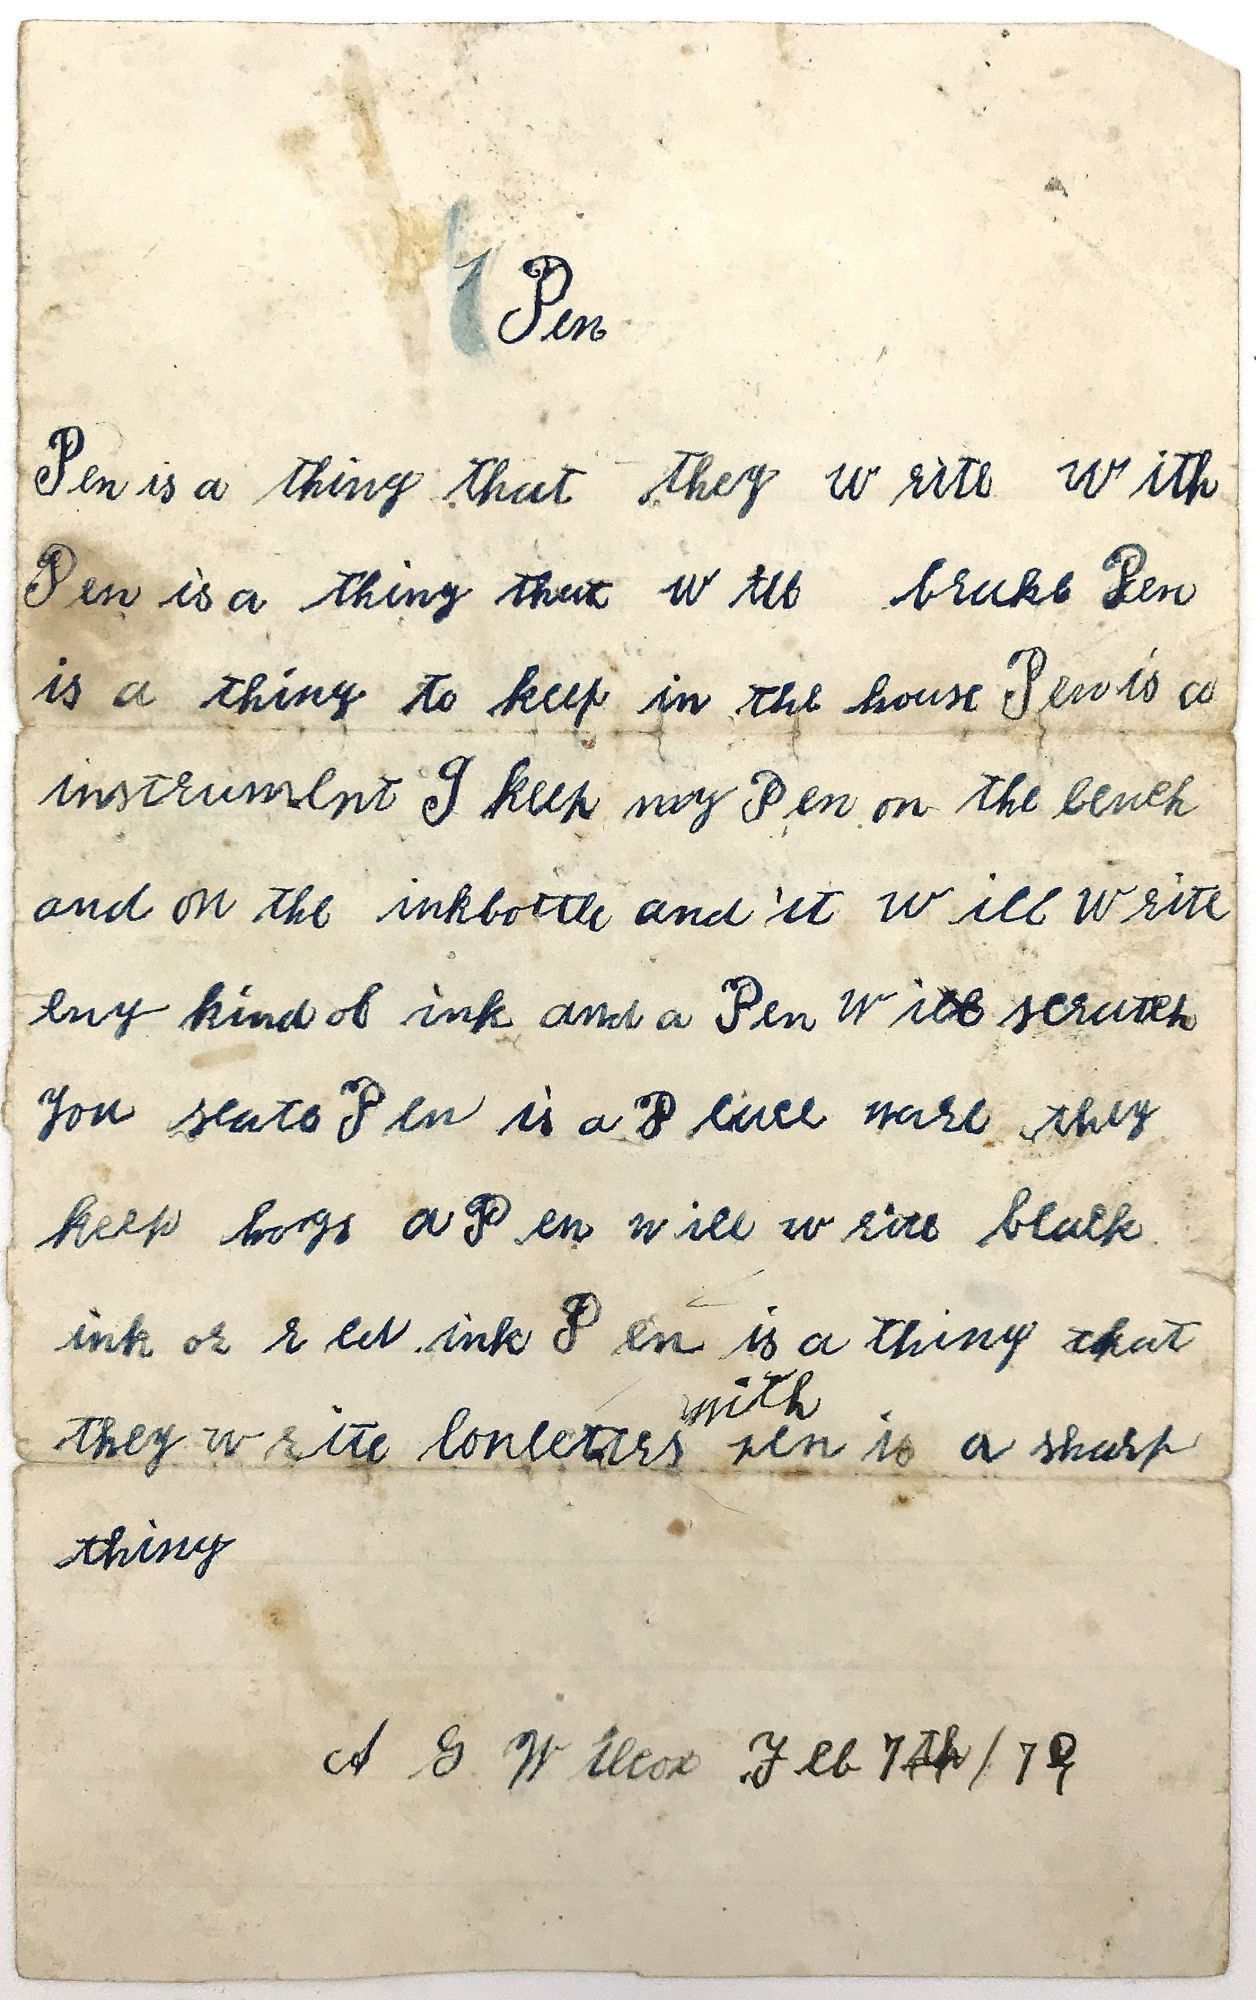 Pen
Pen is a thing that they write with
Pen is a thing that will brake Pen
is a thing to keep in the house Pen is a
instrument I keep my Pen on the bench
and on the inkbottle and it will write
eny kind of ink and a Pen will scratch
you Pen is a Place ware they
keep hogs a Pen will write black
ink or red ink Pen is a thing that
with
they write pen is a sharp
thing
A G Wilcox Feb 7th/79